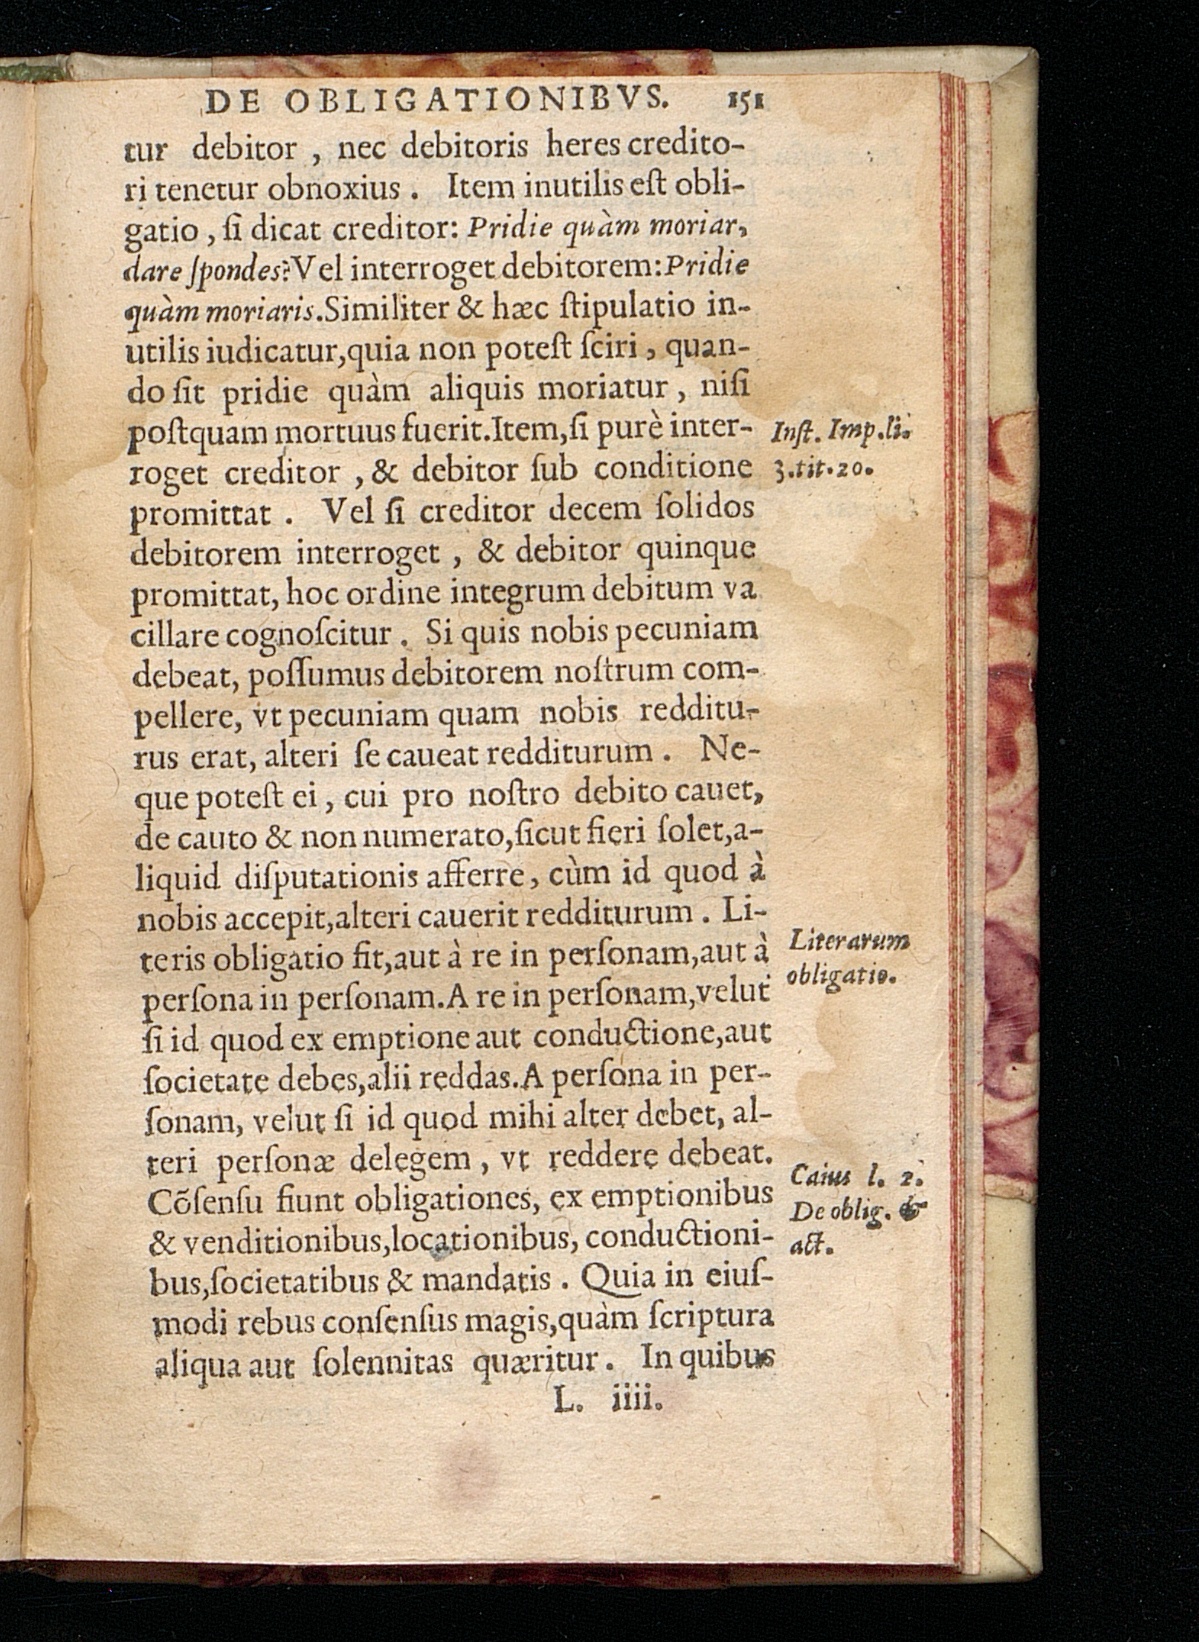 DE OBLIGATIONIBVS. 151
tur debitor, nec debitoris heres credito-
ri tenetur obnoxius. Item inutilis eſt obli-
gatio, ſi dicat creditor: Pridie quàm moriar,
dare ſpondes? Vel interroget debitorem: Pridie
quàm moriaris. Similiter & hæc ſtipulatio in-
utilis iudicatur, quia non poteſt ſciri, quan-
do ſit pridie quàm aliquis moriatur, niſi
poſtquam mortuus fuerit. Item, ſi purè inter-
roget creditor, & debitor ſub conditione
promittat. Vel ſi creditor decem ſolidos
debitorem interroget, & debitor quinque
promittat, hoc ordine integrum debitum va
cillare cognoſcitur. Si quis nobis pecuniam
debeat, poſſumus debitorem noſtrum com-
pellere, vt pecuniam quam nobis redditu-
rus erat, alteri ſe caueat redditurum. Ne-
que poteſt ei, cui pro noſtro debito cauet,
de cauto & non numerato, ſicut fieri ſolet, a-
liquid diſputationis afferre, cùm id quod à
nobis accepit, alteri cauerit redditurum. Li-
teris obligatio fit, aut à re in perſonam, aut à
perſona in perſonam. A re in perſonam, velut
ſi id quod ex emptione aut conductione, aut
ſocietate debes, alii reddas. A perſona in per-
ſonam, velut ſi id quod mihi alter debet, al-
teri perſonæ delegem, vt reddere debeat.
Cõſenſu fiunt obligationes, ex emptionibus
& venditionibus, locationibus, conductioni-
bus, ſocietatibus & mandatis. Quia in eiuſ-
modi rebus conſenſus magis, quàm ſcriptura
aliqua aut ſolennitas quæritur. In quibus
L. iiii.
Inſt. Imp. li.
3. tit. 20.
Literarum
obligatio.
Caius l. 2.
De oblig. &
act.